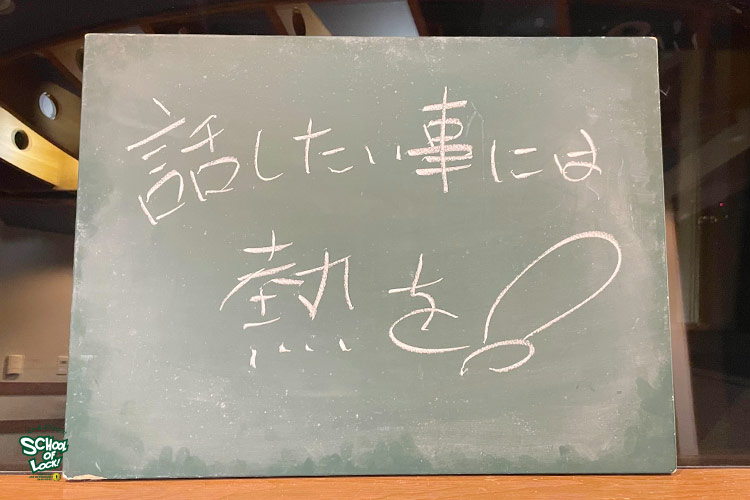 話したい事には
熱を!
SCHOOL
OF
LOCK!